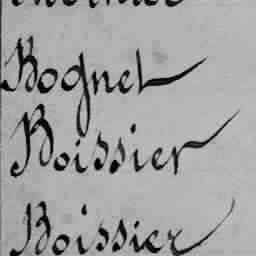 Bognet
Boissier
Boissier